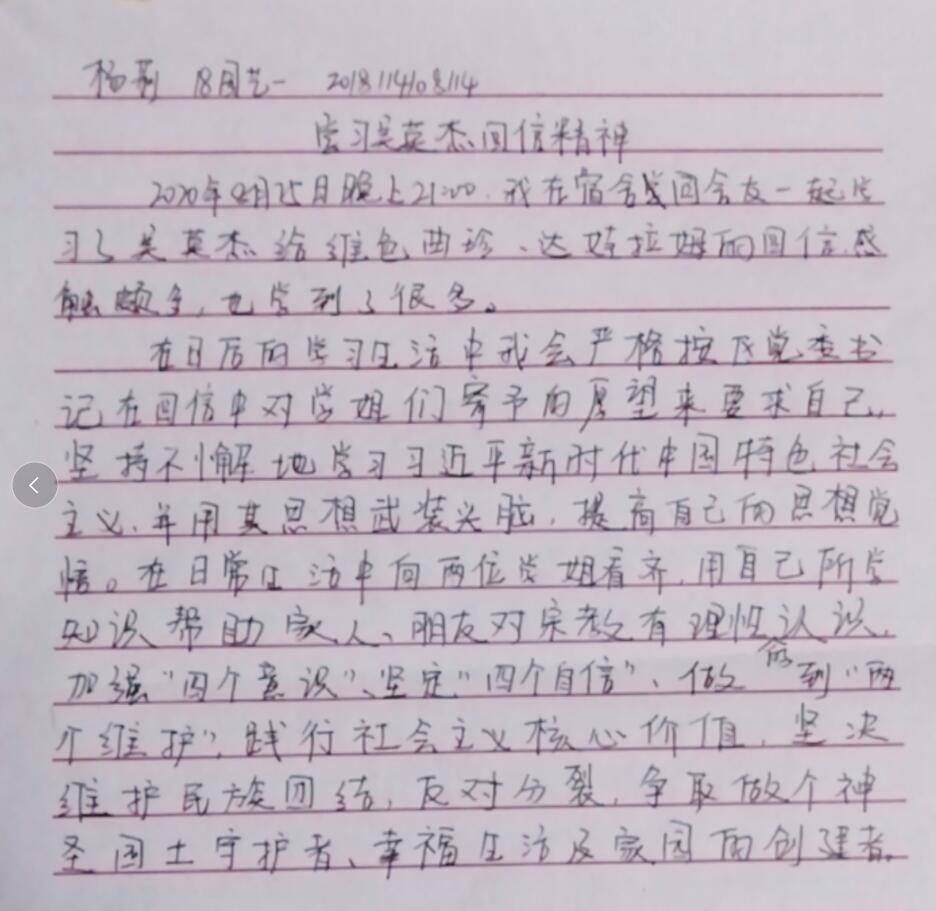 杨荊 18园艺一 2018114108114
学习吴英杰回信精神
2020年4月25日晚上21:00.我在宿舍与同舍友一起学
习了吴英杰给维色曲珍、达娃拉姆的回信,感
触颇多,也学到了很多。
在日后的学习生活中我会严格按区党委书
记在回信中对学姐们寄予的厚望来要求自己,
坚持不懈地学习习近平新时代中国特色社会
主义,并用其思想武装头脑,提高自己的思想觉
悟。在日常生活中向两位学姐看齐,用自己所学
知识帮助家人、朋友对宗教有理性的认识,
加强“四个意识”、坚定“四个自信”、做到“两
个维护”,践行社会主义核心价值,坚决
维护民族团结,反对分裂,争取做个神
圣国土守护者、幸福生活及家园的创建者。